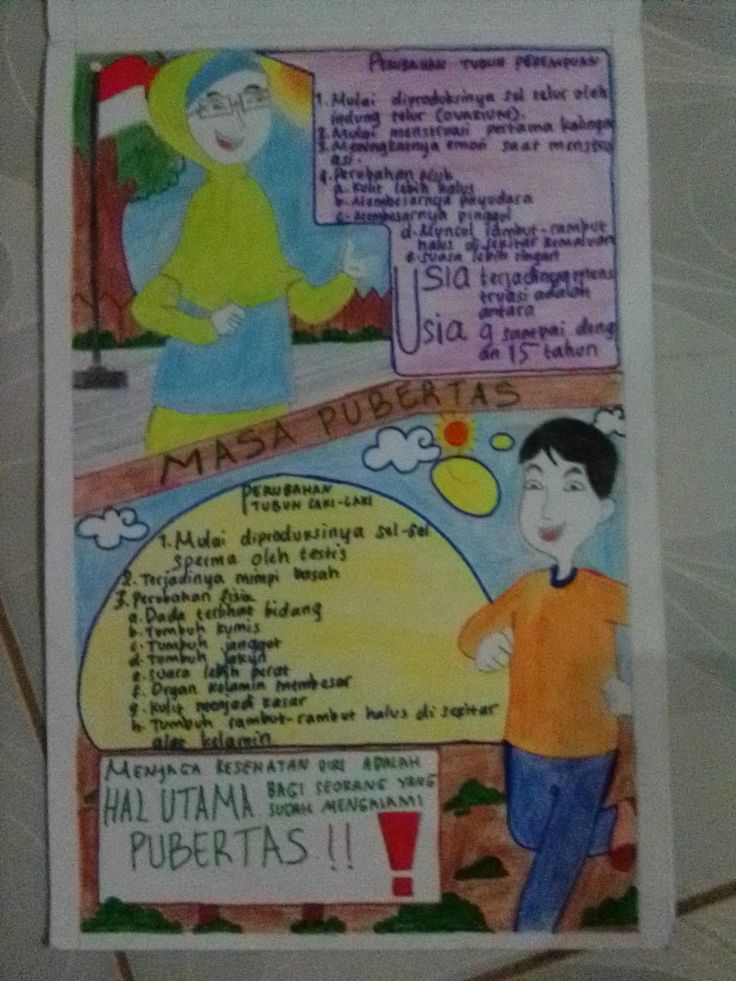 PERUBAHAN TUBUH PEREMPUAN
1. Mulai diproduksinya sel telur oleh
indung telur (OVARIUM).
2. Mulai menstruasi pertama kalinya
3. Meningkatnya emosi saat menstru
asi.
4. Perubahan fisik
a. Kulit lebih halus
b. Membesarnya payudara
c. Membesarnya pinggul
d. Muncul rambut-rambut
halus di sekitar kemaluan
e. suara lebih ringan
Usia terjadinya mens
truasi adalah
antara
Usia 9 sampai deng
an 15 tahun
MASA PUBERTAS
PERUBAHAN
TUBUH LAKI-LAKI
1. Mulai diproduksinya sel-sel
sperma oleh testis
2. Terjadinya mimpi basah
3. Perubahan fisik
a. Dada terlihat bidang
b. Tumbuh kumis
c. Tumbuh janggut
d. Tumbuh jakun
e. Suara lebih berat
f. Organ kelamin membesar
g. Kulit menjadi kasar
h. Tumbuh rambut-rambut halus di sekitar
alat kelamin
MENJAGA KESEHATAN DIRI ADALAH
HAL UTAMA BAGI SEORANG YANG
SUDAH MENGALAMI
PUBERTAS !! !